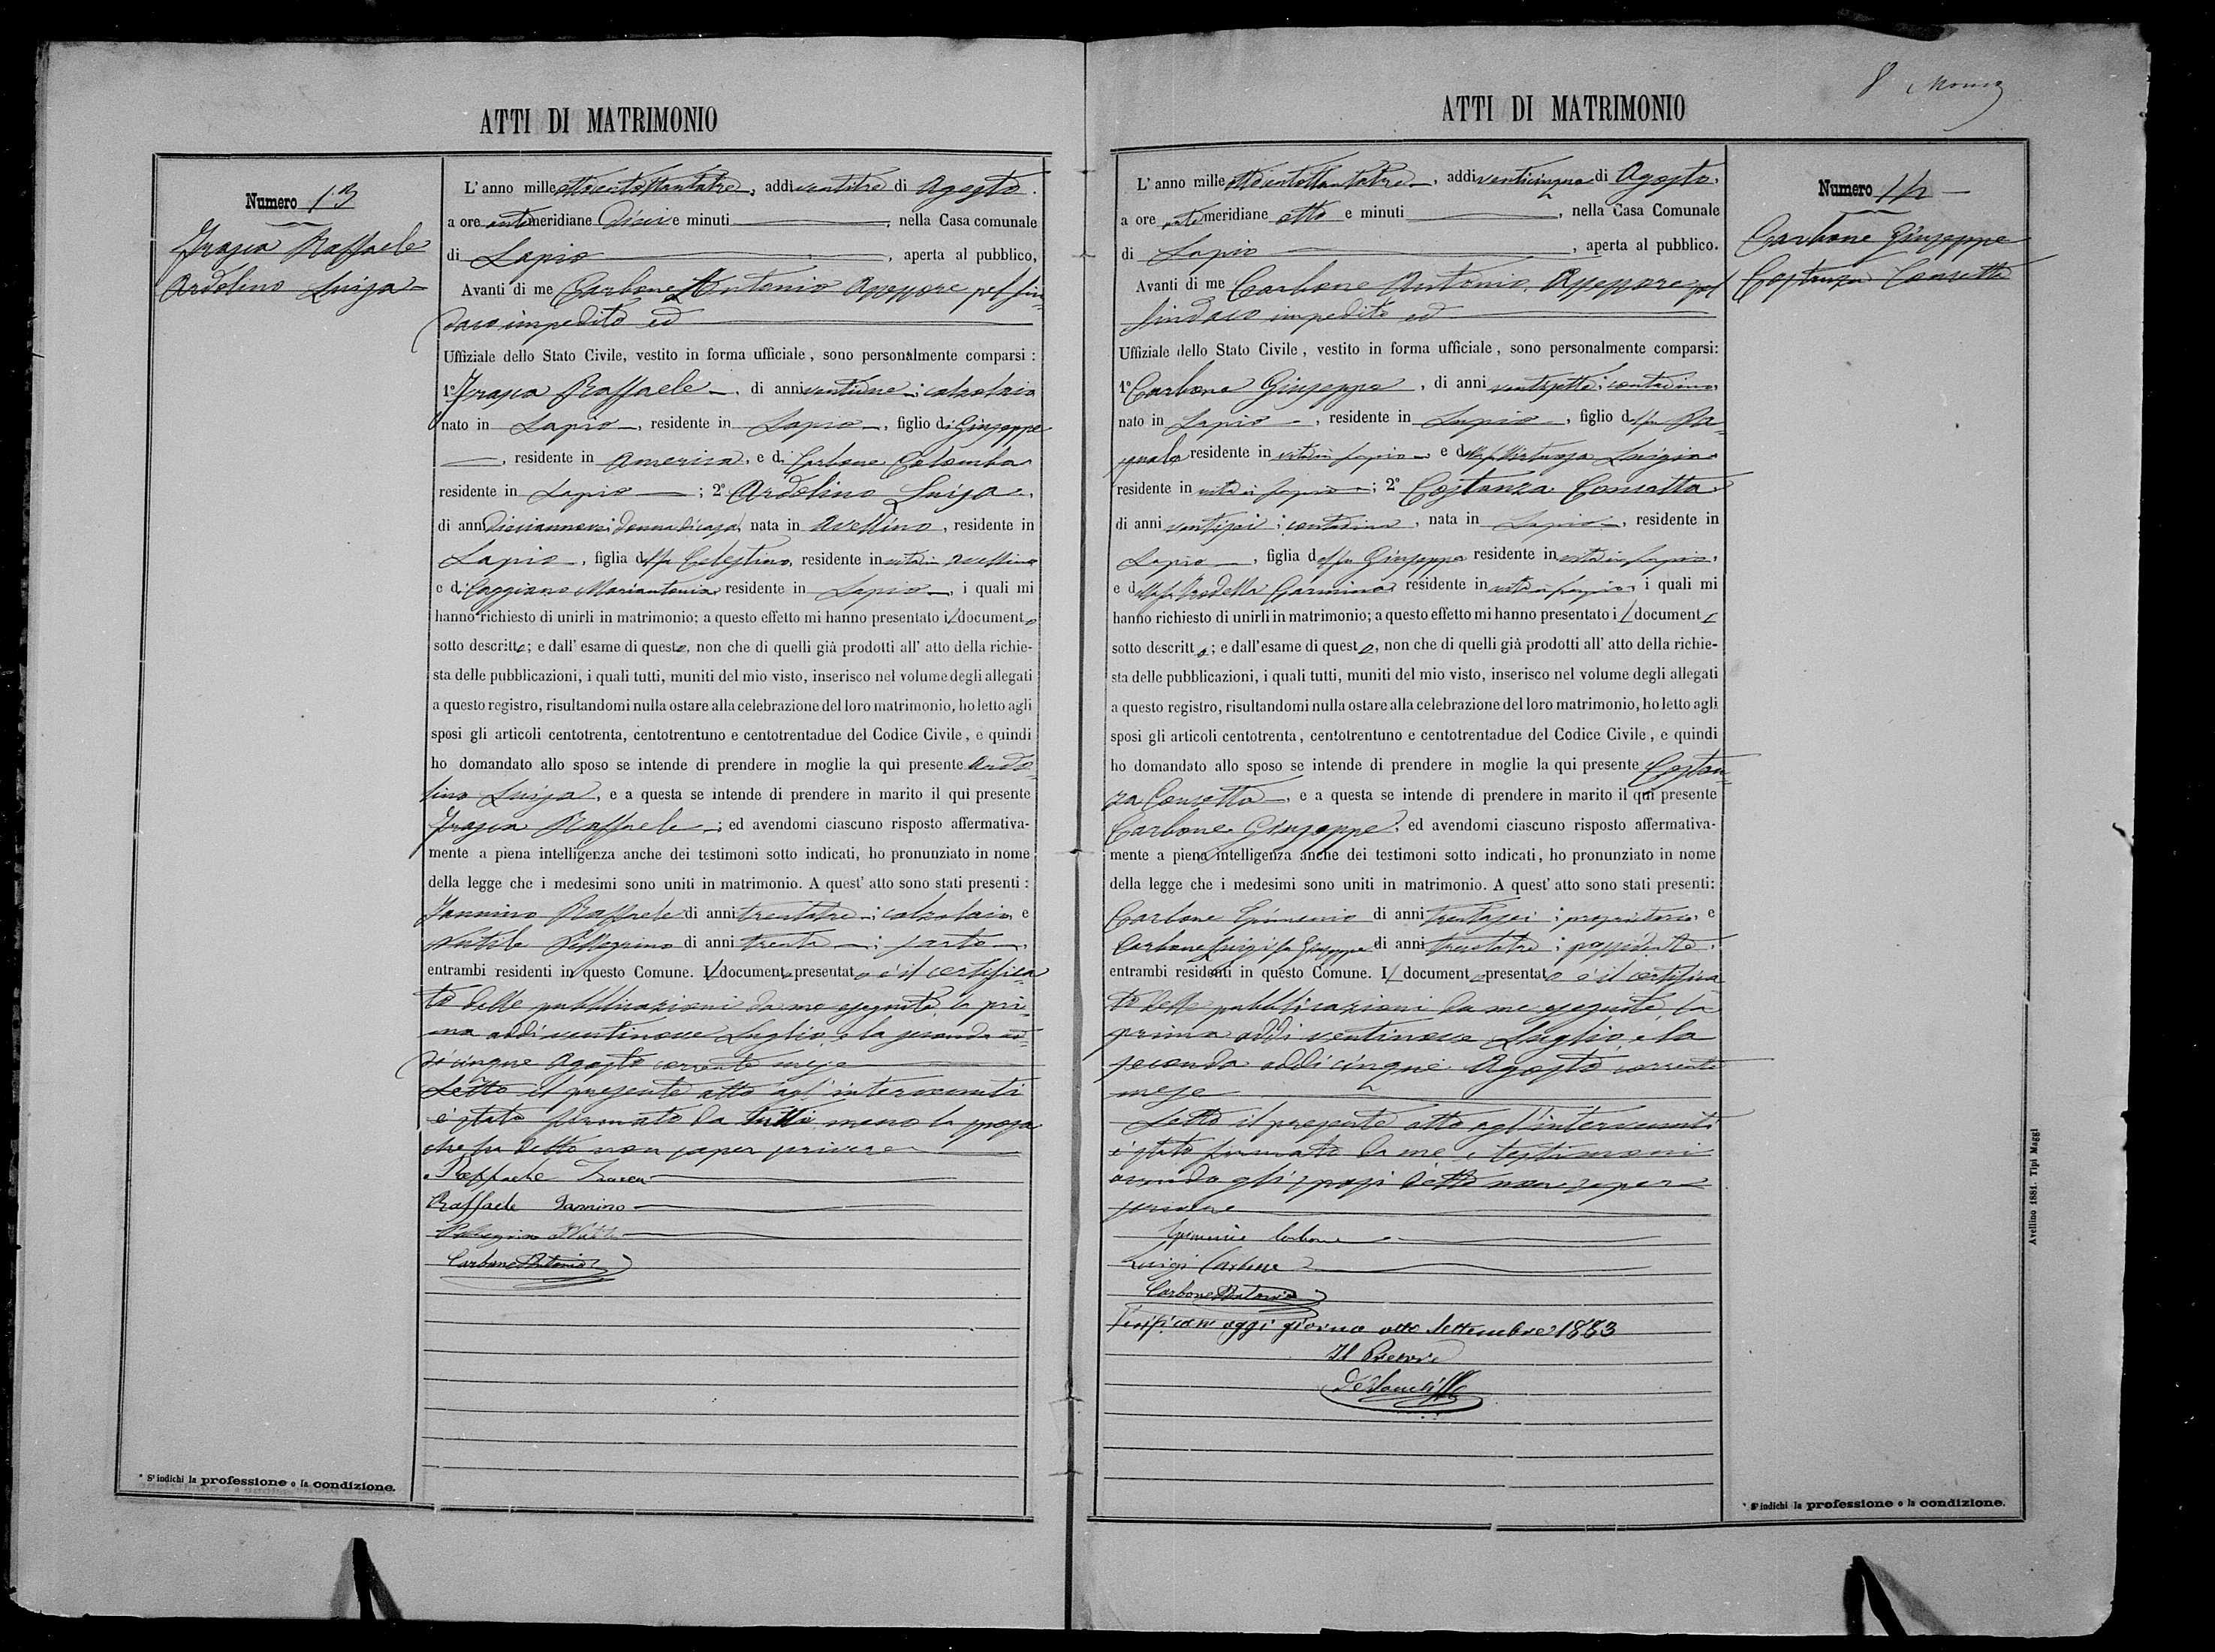 ATTI DI MATRIMONIO
Numero 13
Raffaele
Ardolino Luisa
L' anno mille ottocentottantatre, addi ventitre di Agosto
a ore antimeridiane dieci e minuti , nella Casa comunale
di Lapio , aperta al pubblico,
Avanti di me Carbone Antonio Assessore pel Sin-
daco impedito ed
Uffiziale dello Stato Civile, vestito in forma ufficiale, sono personalmente comparsi :
1.° Raffaele , di anni ; calzolaio
nato in Lapio , residente in Lapio , figlio di Giuseppe
, residente in America, e di Carbone Colomba
residente in Lapio ; 2.° Ardolino Luisa,
di anni diciannove; donna di casa, nata in Avellino, residente in
Lapio , figlia del fu Celestino, residente in vita in Avellino
e di Caggiano Mariantonia residente in Lapio , i quali mi
hanno richiesto di unirli in matrimonio; a questo effetto mi hanno presentato il documento
sotto descritto; e dall' esame di questo, non che di quelli già prodotti all' atto della richie-
sta delle pubblicazioni, i quali tutti, muniti del mio visto, inserisco nel volume degli allegati
a questo registro, risultandomi nulla ostare alla celebrazione del loro matrimonio, ho letto agli
sposi gli articoli centotrenta, centotrentuno e centotrentadue del Codice Civile, e quindi
ho domandato allo sposo se intende di prendere in moglie la qui presente Ardo-
lino Luisa, e a questa se intende di prendere in marito il qui presente
Raffaele ; ed avendomi ciascuno risposto affermativa-
mente a piena intelligenza anche dei testimoni sotto indicati, ho pronunziato in nome
della legge che i medesimi sono uniti in matrimonio. A quest' atto sono stati presenti :
Iannino Raffaele di anni trentatre ; calzolaio e
Pellegrino di anni trenta ; sarto ,
entrambi residenti in questo Comune. Il documento presentato è il certifica-
to delle pubblicazioni da me eseguite, la pri-
ma addi ventinove Luglio, e la seconda ad-
di cinque Agosto corrente mese
Letto il presente atto agl' intervenuti
è stato firmato da tutti meno la sposa
che ha detto non saper scrivere
Raffaele
Raffaele Iannino
Pellegrino
Carbone Antonio
* S' indichi la professione o la condizione.
8
ATTI DI MATRIMONIO
Numero 14
Carbone Giuseppe
Costanza Concetta
L' anno mille ottocentottantatre, addi venticinque di Agosto,
a ore antimeridiane otto e minuti , nella Casa Comunale
di Lapio , aperta al pubblico.
Avanti di me Carbone Antonio, Assessore pel
Sindaco impedito ed
Uffiziale dello Stato Civile, vestito in forma ufficiale, sono personalmente comparsi:
1.° Carbone Giuseppe , di anni ventisette; contadino,
nato in Lapio , residente in Lapio , figlio del fu Pa-
squale residente in vita in Lapio e della fu Luigia
residente in vita in Lapio ; 2.° Costanza Concetta
di anni ventisei ; contadina , nata in Lapio , residente in
Lapio , figlia del fu Giuseppe residente in vita in Lapio,
e della fu Carmina residente in vita in Lapio, i quali mi
hanno richiesto di unirli in matrimonio; a questo effetto mi hanno presentato il documento
sotto descritto; e dall' esame di questo, non che di quelli già prodotti all' atto della richie-
sta delle pubblicazioni, i quali tutti, muniti del mio visto, inserisco nel volume degli allegati
a questo registro, risultandomi nulla ostare alla celebrazione del loro matrimonio, ho letto agli
sposi gli articoli centotrenta, centotrentuno e centotrentadue del Codice Civile, e quindi
ho domandato allo sposo se intende di prendere in moglie la qui presente Costan-
za Concetta , e a questa se intende di prendere in marito il qui presente
Carbone Giuseppe, ed avendomi ciascuno risposto affermativa-
mente a piena intelligenza anche dei testimoni sotto indicati, ho pronunziato in nome
della legge che i medesimi sono uniti in matrimonio. A quest' atto sono stati presenti:
Carbone Ipimenio di anni trentasei ; proprietario, e
Carbone Luigi fu Giuseppe di anni trentatre ; possidente,
entrambi residenti in questo Comune. Il documento presentato è il certifica-
to delle pubblicazioni da me eseguite, la
prima addi ventinove Luglio, e la
seconda addi cinque Agosto corrente
mese
Letto il presente atto agl' intervenuti
è stato firmato da me e testimoni
avendo gli sposi detto non saper
scrivere
Ipimenio Carbone
Luigi Carbone
Carbone Antonio
Verificato oggi giorno otto Settembre 1883
Il Pretore
* S' indichi la professione o la condizione.
Avellino 1881. Tipi Maggi